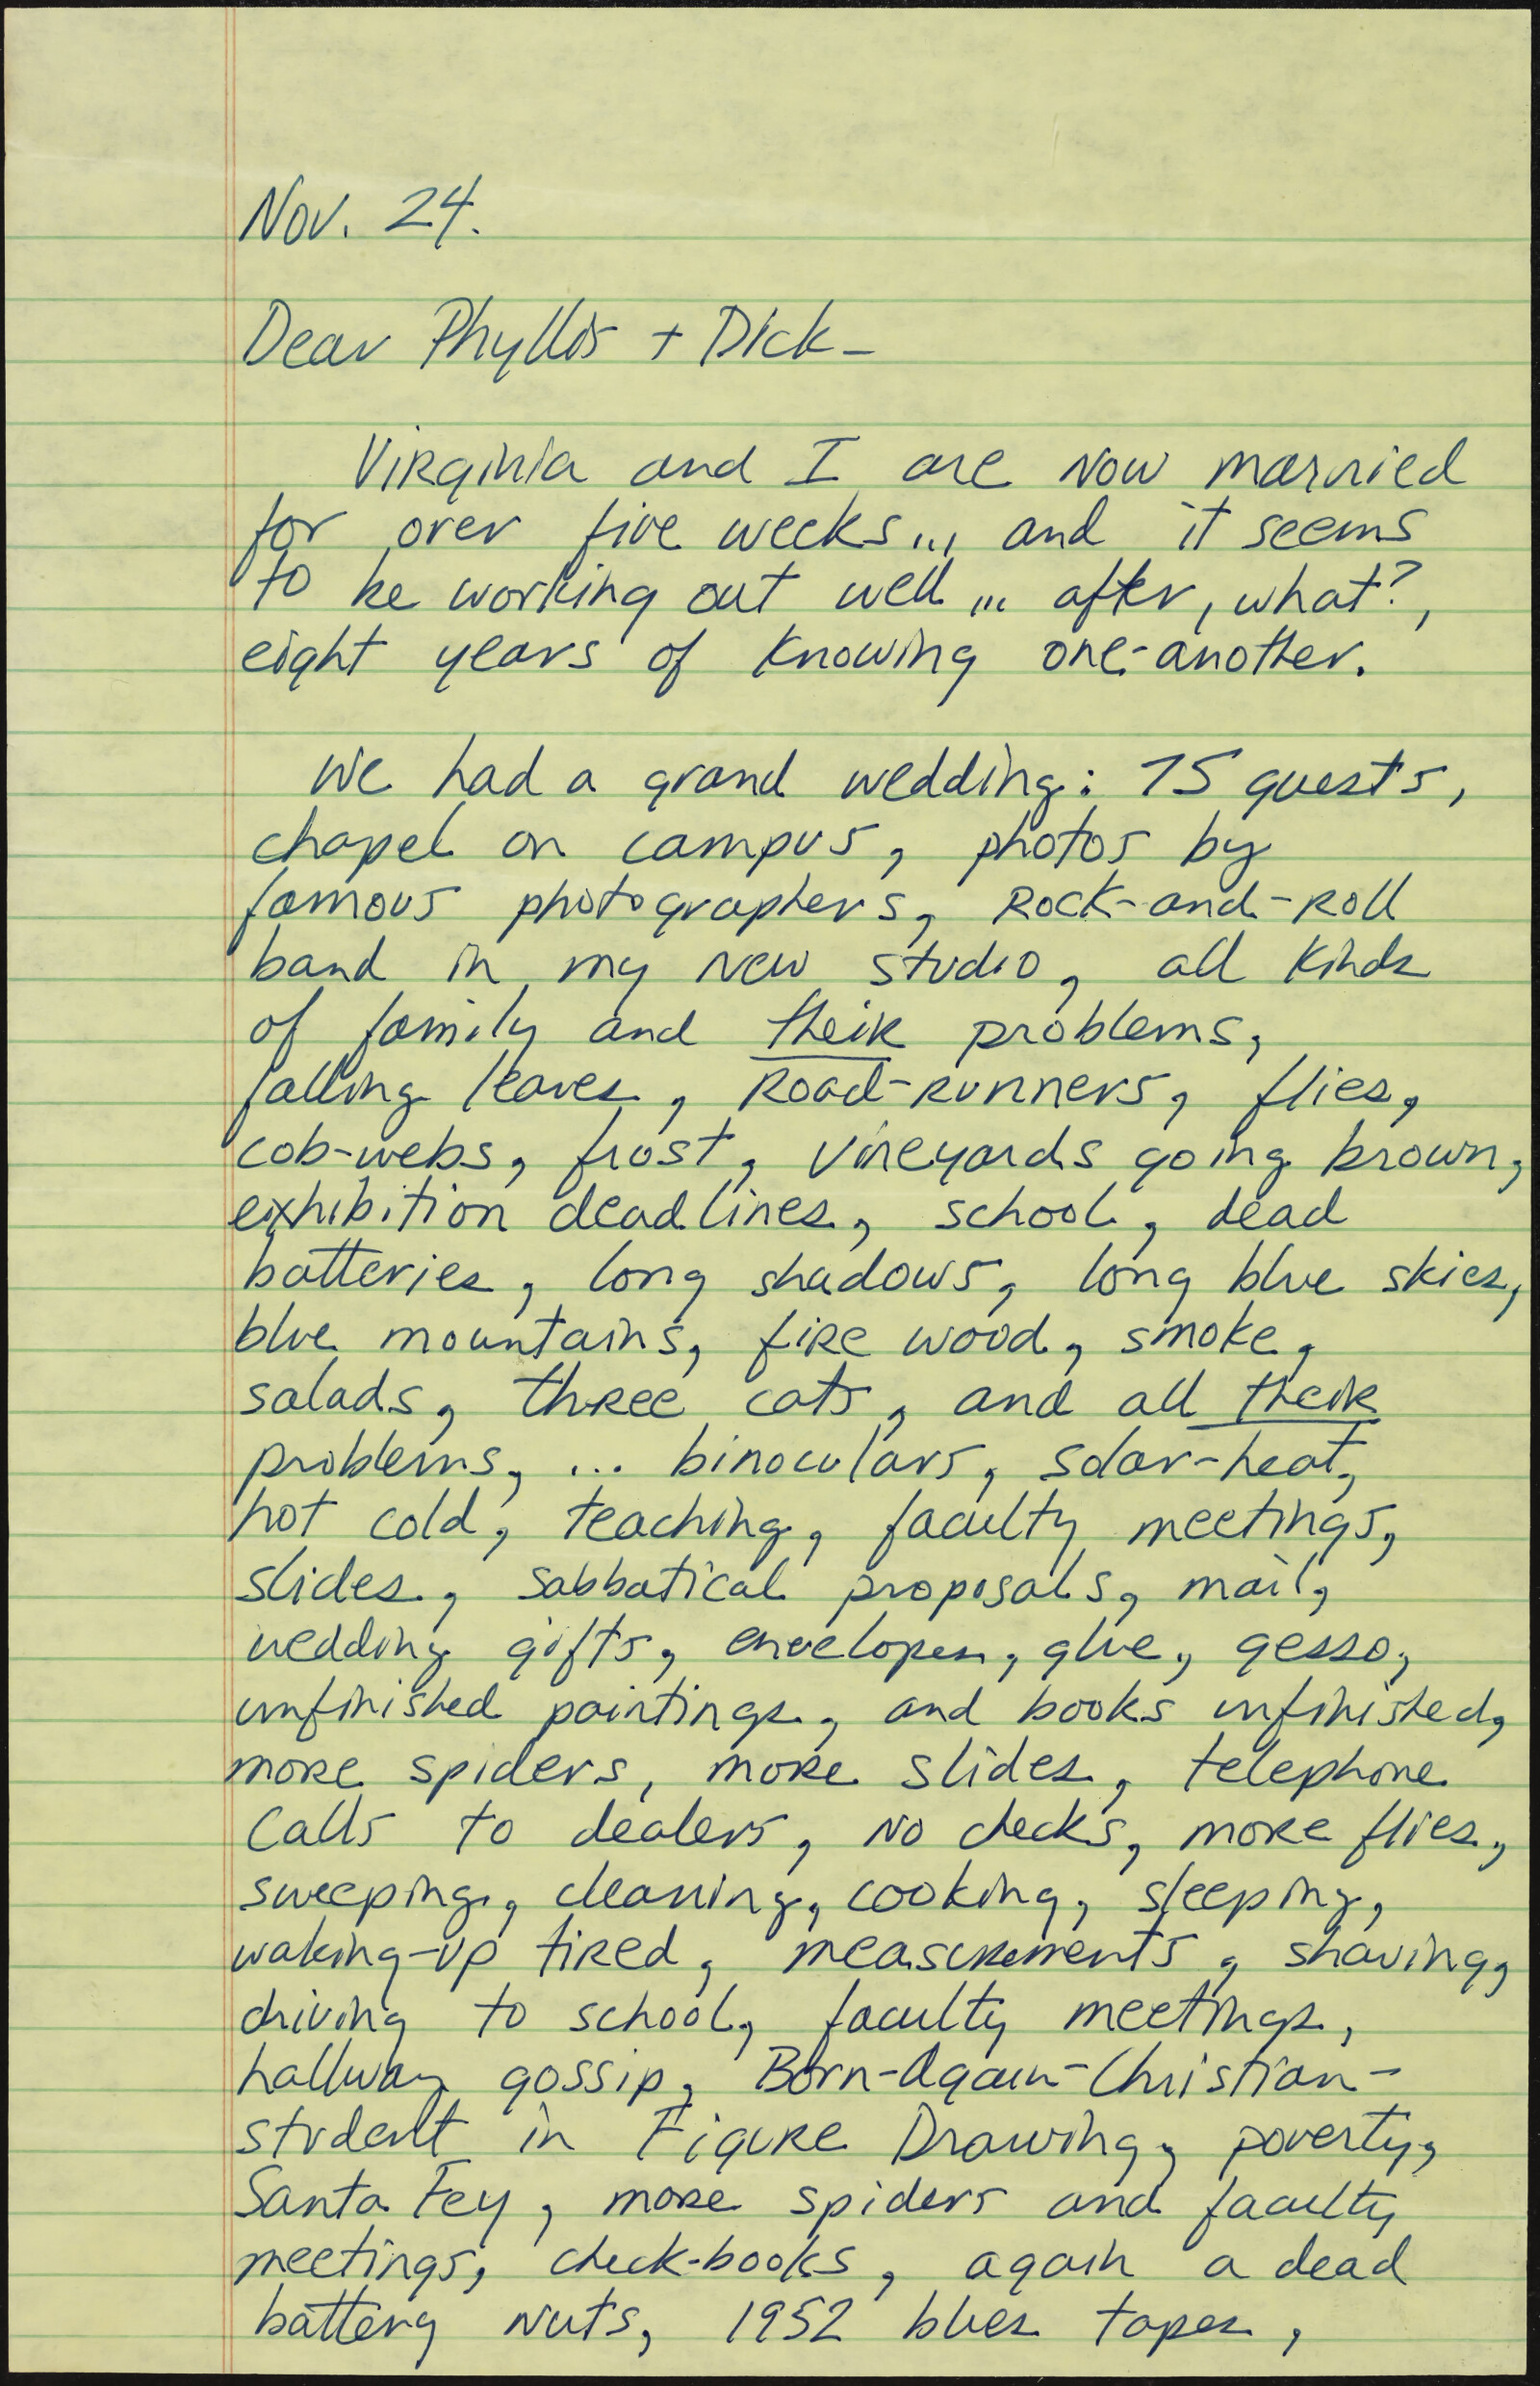 Nov. 24.
Dear Phyllis + Dick-
Virginia and I are now married
for over five weeks... and it seems
to be working out well... after, what?,
eight years of knowing one-another.
We had a grand wedding: 75 guests,
chapel on campus, photos by
famous photographers, Rock-and-Roll
band in my new studio, all kinds
of family and their problems,
falling leaves, Road-Runners, flies,
cob-webs, frost, vineyards going brown,
exhibition deadlines, school, dead
batteries, long shadows, long blue skies,
blue mountains, fire wood, smoke,
salads, three cats, and all their
problems, ... binoculars, solar-heat,
hot cold, teaching, faculty meetings,
slides, sabbatical proposals, mail,
wedding gifts, envelopes, glue, gesso,
unfinished paintings, and books unfinished,
more spiders, more slides, telephone
calls to dealers, no checks, more flies,
sweeping, cleaning, cooking, sleeping,
waking-up tired, measurements, shaving,
driving to school, faculty meetings,
hallway gossip, Born-Again-Christian-
student in Figure Drawing, poverty,
Santa Fey, more spiders and faculty
meetings, check-books, again a dead
battery nuts, 1952 blues tapes,